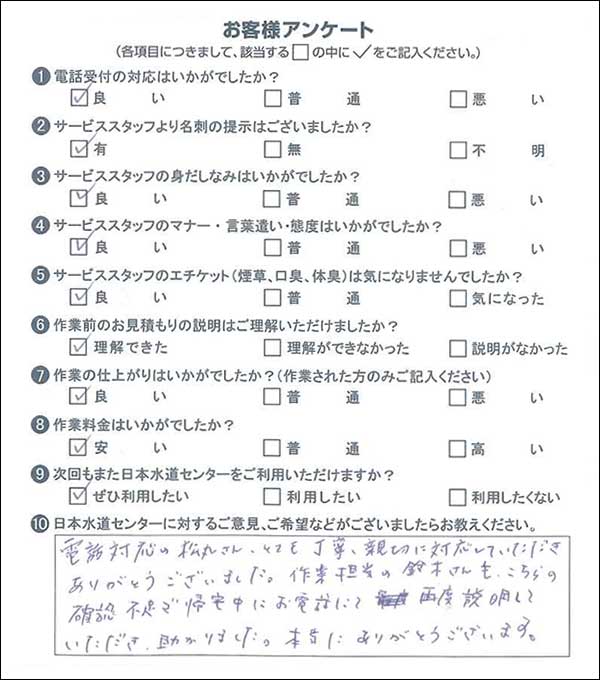 お客様アンケート
(各項目につきまして、該当する□の中に✓をご記入ください。)
❶ 電話受付の対応はいかがでしたか?
☑良い □普通 □悪い
❷ サービススタッフより名刺の提示はございましたか?
☑有 □無 □不明
❸ サービススタッフの身だしなみはいかがでしたか?
☑良い □普通 □悪い
❹ サービススタッフのマナー・言葉遣い・態度はいかがでしたか?
☑良い □普通 □悪い
❺ サービススタッフのエチケット(煙草、口臭、体臭)は気になりませんでしたか?
☑良い □普通 □気になった
❻ 作業前のお見積もりの説明はご理解いただけましたか?
☑理解できた □理解ができなかった □説明がなかった
❼ 作業の仕上がりはいかがでしたか?(作業された方のみご記入ください)
☑良い □普通 □悪い
❽ 作業料金はいかがでしたか?
☑安い □普通 □高い
❾ 次回もまた日本水道センターをご利用いただけますか?
☑ぜひ利用したい □利用したい □利用したくない
❿ 日本水道センターに対するご意見、ご希望などがございましたらお教えください。
電話対応の松丸さん、とても丁寧、親切に対応していただき
ありがとうございました。作業担当の鈴木さんも、こちらの
確認不足で帰宅中にお電話にて 再度説明して
いただき、助かりました。本当にありがとうございます。